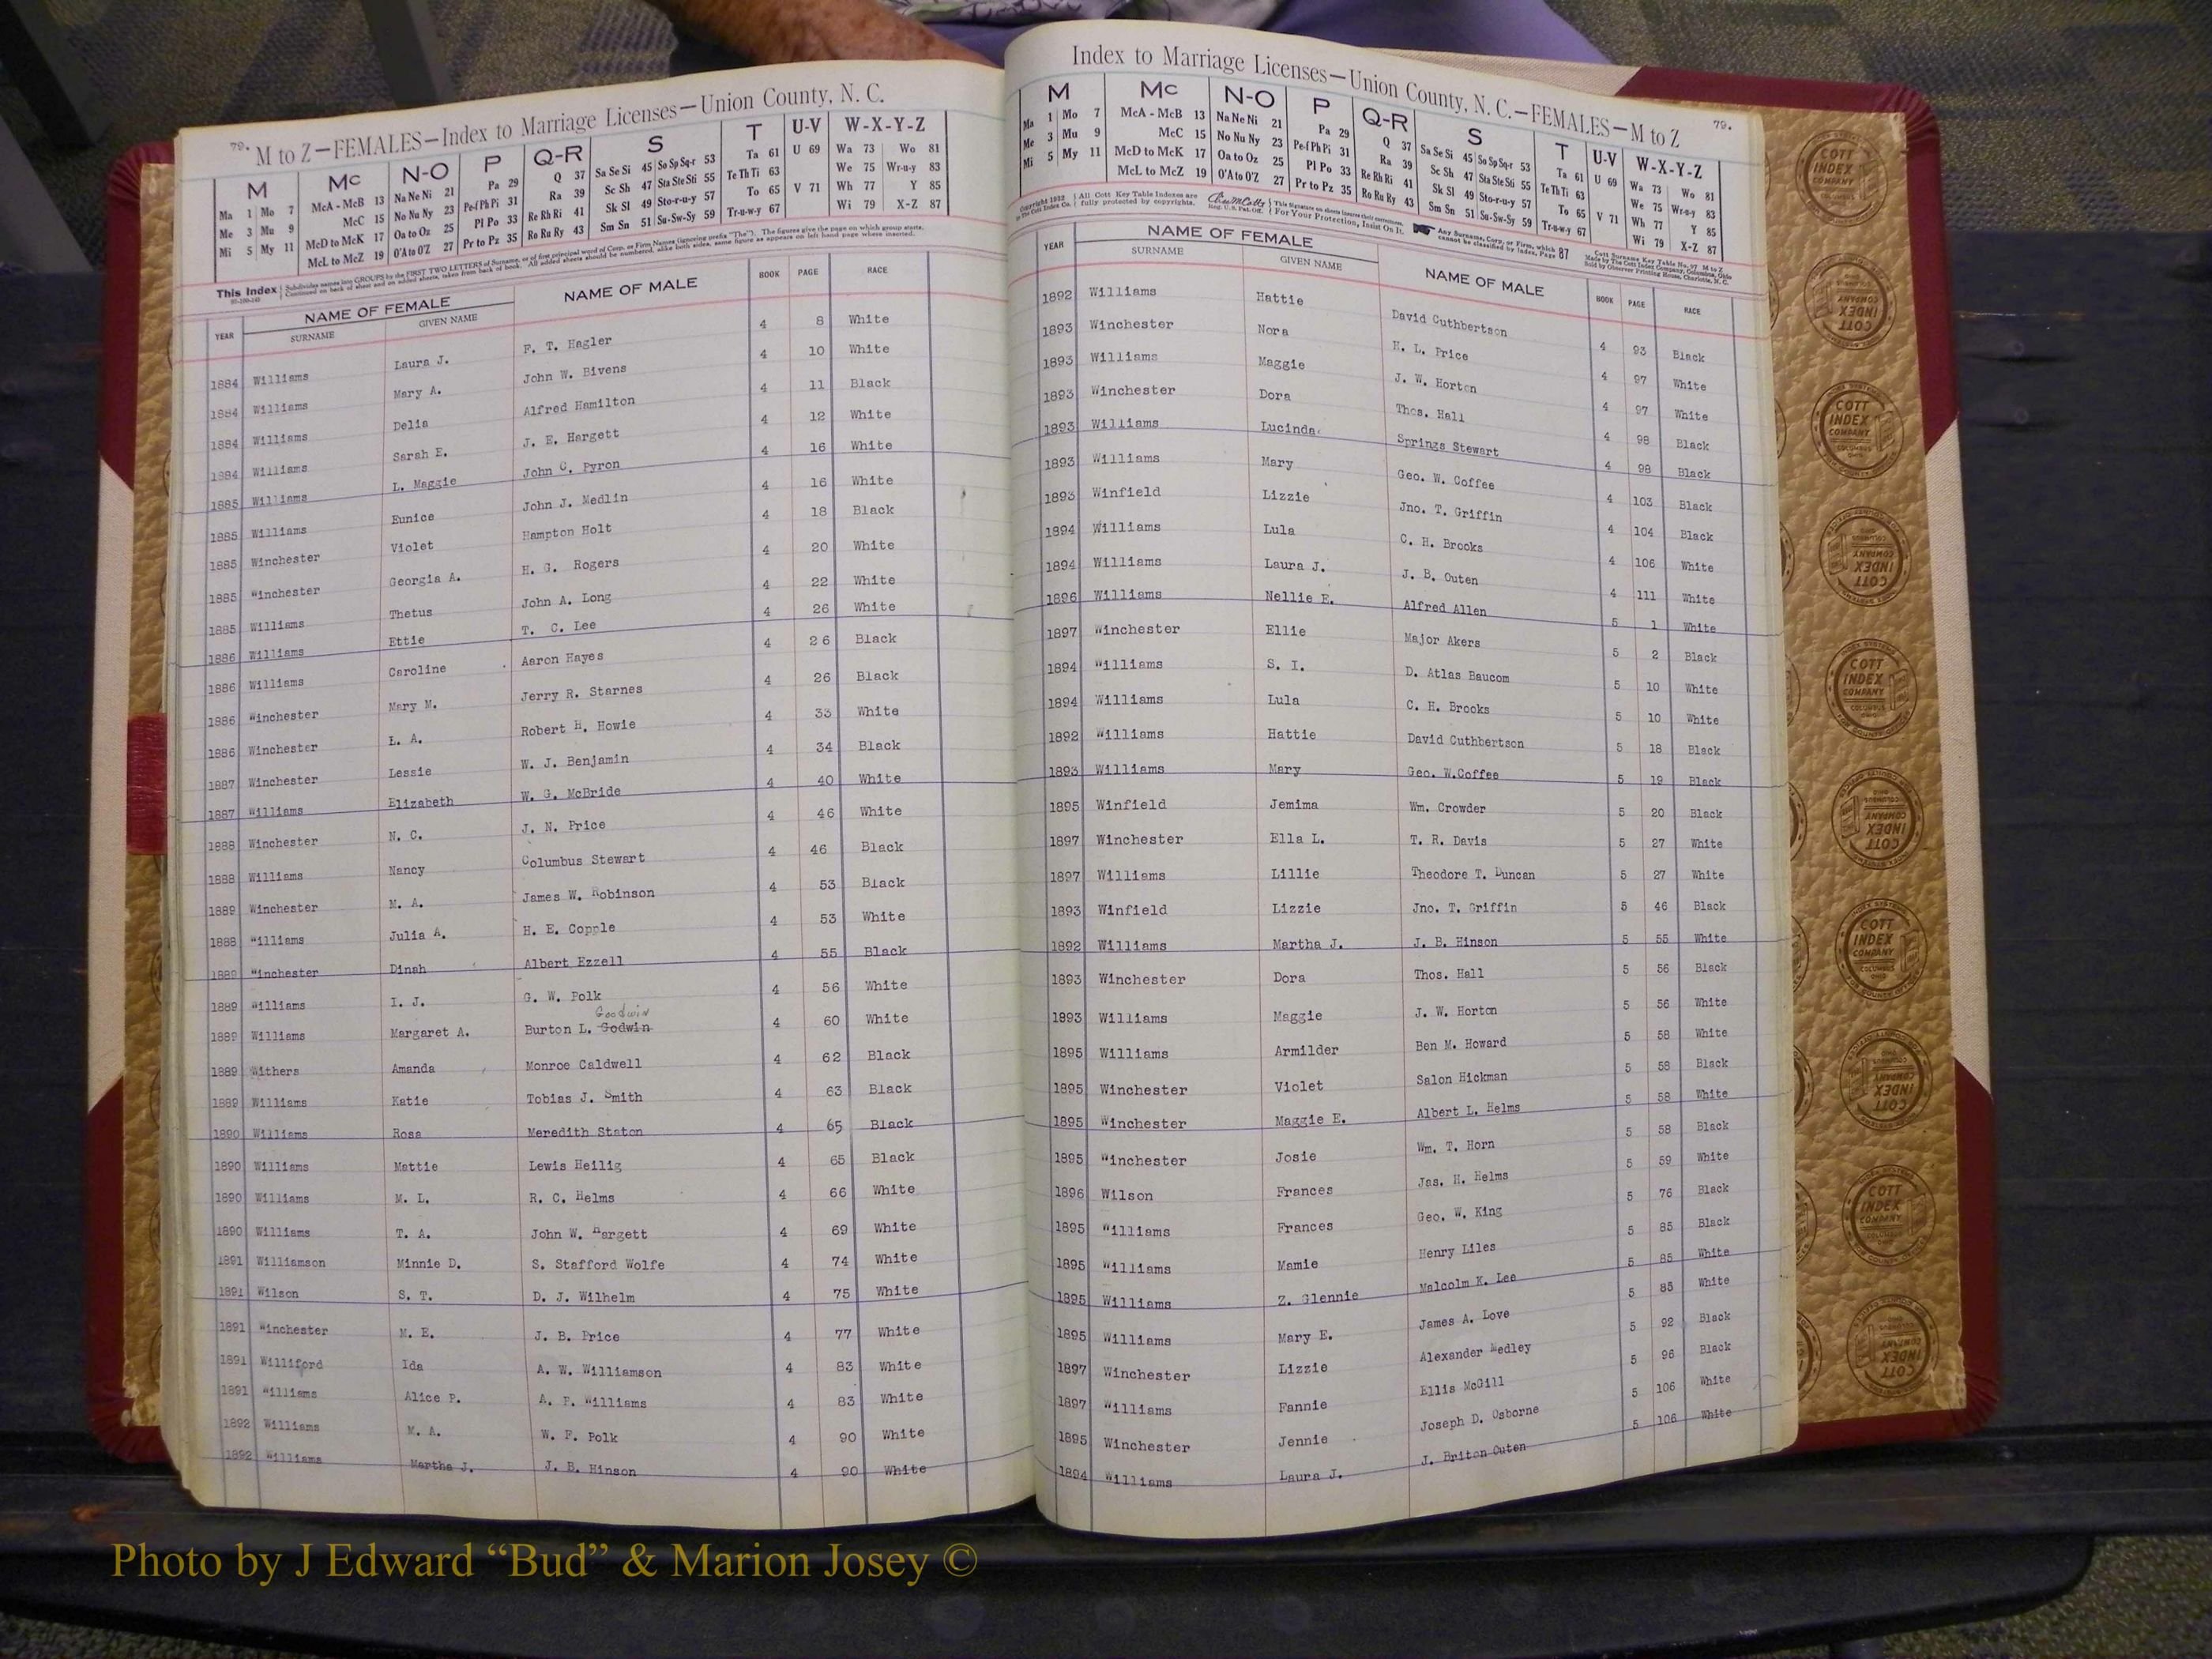 79. M to Z—FEMALES—Index to Marriage Licenses—Union County, N. C.
M Mc N-O P Q-R S T U-V W-X-Y-Z
Ma 1 Mo 7 McA - McB 13 Na Ne Ni 21 Pa 29 Q 37 Sa Se Si 45 So Sp Sq-r 53 Ta 61 U 69 Wa 73 Wo 81
Me 3 Mu 9 McC 15 No Nu Ny 23 Pe-f Ph Pi 31 Ra 39 Sc Sh 47 Sta Ste Sti 55 Te Th Ti 63 We 75 Wr-u-y 83
Mi 5 My 11 McD to McK 17 Oa to Oz 25 Pl Po 33 Re Rh Ri 41 Sk Sl 49 Sto-r-u-y 57 To 65 V 71 Wh 77 Y 85
McL to McZ 19 O'A to O'Z 27 Pr to Pz 35 Ro Ru Ry 43 Sm Sn 51 Su-Sw-Sy 59 Tr-u-w-y 67 Wi 79 X-Z 87
This Index Subdivides names into GROUPS by the FIRST TWO LETTERS of Surname, or of first principal word of Corp. or Firm Names (ignoring prefix "The"). The figures give the page on which group starts.
Continued on back of sheet and on added sheets, taken from back of book. All added sheets should be numbered, alike both sides, same figure as appears on left hand page where inserted.
YEAR NAME OF FEMALE NAME OF MALE BOOK PAGE RACE
SURNAME GIVEN NAME
1884 Williams Laura J. F. T. Hagler 4 8 White
1884 Williams Mary A. John W. Bivens 4 10 White
1884 Williams Delia Alfred Hamilton 4 11 Black
1884 Williams Sarah E. J. E. Hargett 4 12 White
1885 Williams L. Maggie John C. Pyron 4 16 White
1885 Williams Eunice John J. Medlin 4 16 White
1885 Winchester Violet Hampton Holt 4 18 Black
1885 Winchester Georgia A. H. G. Rogers 4 20 White
1885 Williams Thetus John A. Long 4 22 White
1886 Williams Ettie T. C. Lee 4 26 White
1886 Williams Caroline Aaron Hayes 4 26 Black
1886 Winchester Mary M. Jerry R. Starnes 4 26 Black
1886 Winchester L. A. Robert H. Howie 4 33 White
1887 Winchester Lessie W. J. Benjamin 4 34 Black
1887 Williams Elizabeth W. G. McBride 4 40 White
1888 Winchester N. C. J. N. Price 4 46 White
1888 Williams Nancy Columbus Stewart 4 46 Black
1889 Winchester M. A. James W. Robinson 4 53 Black
1888 Williams Julia A. H. E. Copple 4 53 White
1889 Winchester Dinah Albert Ezzell 4 55 Black
1889 Williams I. J. G. W. Polk 4 56 White
Goodwin
1889 Williams Margaret A. Burton L. Godwin 4 60 White
1889 Withers Amanda Monroe Caldwell 4 62 Black
1889 Williams Katie Tobias J. Smith 4 63 Black
1890 Williams Rosa Meredith Staton 4 65 Black
1890 Williams Mattie Lewis Heilig 4 65 Black
1890 Williams M. L. R. C. Helms 4 66 White
1890 Williams T. A. John W. Hargett 4 69 White
1891 Williamson Minnie D. S. Stafford Wolfe 4 74 White
1891 Wilson S. T. D. J. Wilhelm 4 75 White
1891 Winchester M. E. J. B. Price 4 77 White
1891 Williford Ida A. W. Williamson 4 83 White
1891 Williams Alice P. A. F. Williams 4 83 White
1892 Williams M. A. W. F. Polk 4 90 White
1892 Williams Martha J. J. B. Hinson 4 90 White
Index to Marriage Licenses—Union County, N. C.—FEMALES—M to Z 79.
M Mc N-O P Q-R S T U-V W-X-Y-Z
Ma 1 Mo 7 McA - McB 13 Na Ne Ni 21 Pa 29 Q 37 Sa Se Si 45 So Sp Sq-r 53 Ta 61 U 69 Wa 73 Wo 81
Me 3 Mu 9 McC 15 No Nu Ny 23 Pe-f Ph Pi 31 Ra 39 Sc Sh 47 Sta Ste Sti 55 Te Th Ti 63 We 75 Wr-u-y 83
Mi 5 My 11 McD to McK 17 Oa to Oz 25 Pl Po 33 Re Rh Ri 41 Sk Sl 49 Sto-r-u-y 57 To 65 V 71 Wh 77 Y 85
McL to McZ 19 O'A to O'Z 27 Pr to Pz 35 Ro Ru Ry 43 Sm Sn 51 Su-Sw-Sy 59 Tr-u-w-y 67 Wi 79 X-Z 87
Copyright 1932 by The Cott Index Co. All Cott Key Table Indexes are fully protected by copyrights. Reg. U.S. Pat. Off. This Signature on sheets insures their correctness. For Your Protection, Insist On It. Any Surname, Corp. or Firm, which cannot be classified by Index, Page 87 Cott Surname Key Table No. 97 M to Z Made by The Cott Index Company, Columbus, Ohio Sold by Observer Printing House, Charlotte, N. C.
YEAR NAME OF FEMALE NAME OF MALE BOOK PAGE RACE
SURNAME GIVEN NAME
1892 Williams Hattie David Cuthbertson 4 93 Black
1893 Winchester Nora H. L. Price 4 97 White
1893 Williams Maggie J. W. Horton 4 97 White
1893 Winchester Dora Thos. Hall 4 98 Black
1893 Williams Lucinda Springs Stewart 4 98 Black
1893 Williams Mary Geo. W. Coffee 4 103 Black
1893 Winfield Lizzie Jno. T. Griffin 4 104 Black
1894 Williams Lula C. H. Brooks 4 106 White
1894 Williams Laura J. J. B. Outen 4 111 White
1896 Williams Nellie E. Alfred Allen 5 1 White
1897 Winchester Ellie Major Akers 5 2 Black
1894 Williams S. I. D. Atlas Baucom 5 10 White
1894 Williams Lula C. H. Brooks 5 10 White
1892 Williams Hattie David Cuthbertson 5 18 Black
1893 Williams Mary Geo. W.Coffee 5 19 Black
1895 Winfield Jemima Wm. Crowder 5 20 Black
1897 Winchester Ella L. T. R. Davis 5 27 White
1897 Williams Lillie Theodore T. Duncan 5 27 White
1893 Winfield Lizzie Jno. T. Griffin 5 46 Black
1892 Williams Martha J. J. B. Hinson 5 55 White
1893 Winchester Dora Thos. Hall 5 56 Black
1893 Williams Maggie J. W. Horton 5 56 White
1895 Williams Armilder Ben M. Howard 5 58 White
1895 Winchester Violet Salon Hickman 5 58 Black
1895 Winchester Maggie E. Albert L. Helms 5 58 White
1895 Winchester Josie Wm. T. Horn 5 58 Black
1896 Wilson Frances Jas. H. Helms 5 59 White
1895 Williams Frances Geo. W. King 5 76 Black
1895 Williams Mamie Henry Liles 5 85 Black
1895 Williams Z. Glennie Malcolm K. Lee 5 85 White
1895 Williams Mary E. James A. Love 5 85 White
1897 Winchester Lizzie Alexander Medley 5 92 Black
1897 Williams Fannie Ellis McGill 5 96 Black
1895 Winchester Jennie Joseph D. Osborne 5 106 White
1894 Williams Laura J. J. Briton Outen 5 106 White
COTT INDEX COMPANY COLUMBUS OHIO
Photo by J Edward “Bud” & Marion Josey ©